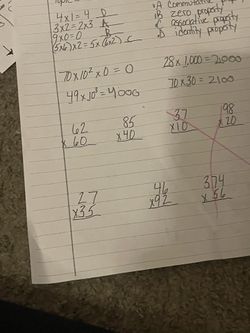 4x1=4 D
3x2=2x3 A
9x0=0 B
(5x6)x2=5x(6x2) C
A Commutative
B zero property
C associative property
D identity property
70x10²x0=0
28x1,000=28000
49x10³=49000
70x30=2100
62
x 60
85
x40
37
x10
98
x20
27
x35
46
x92
374
x 56